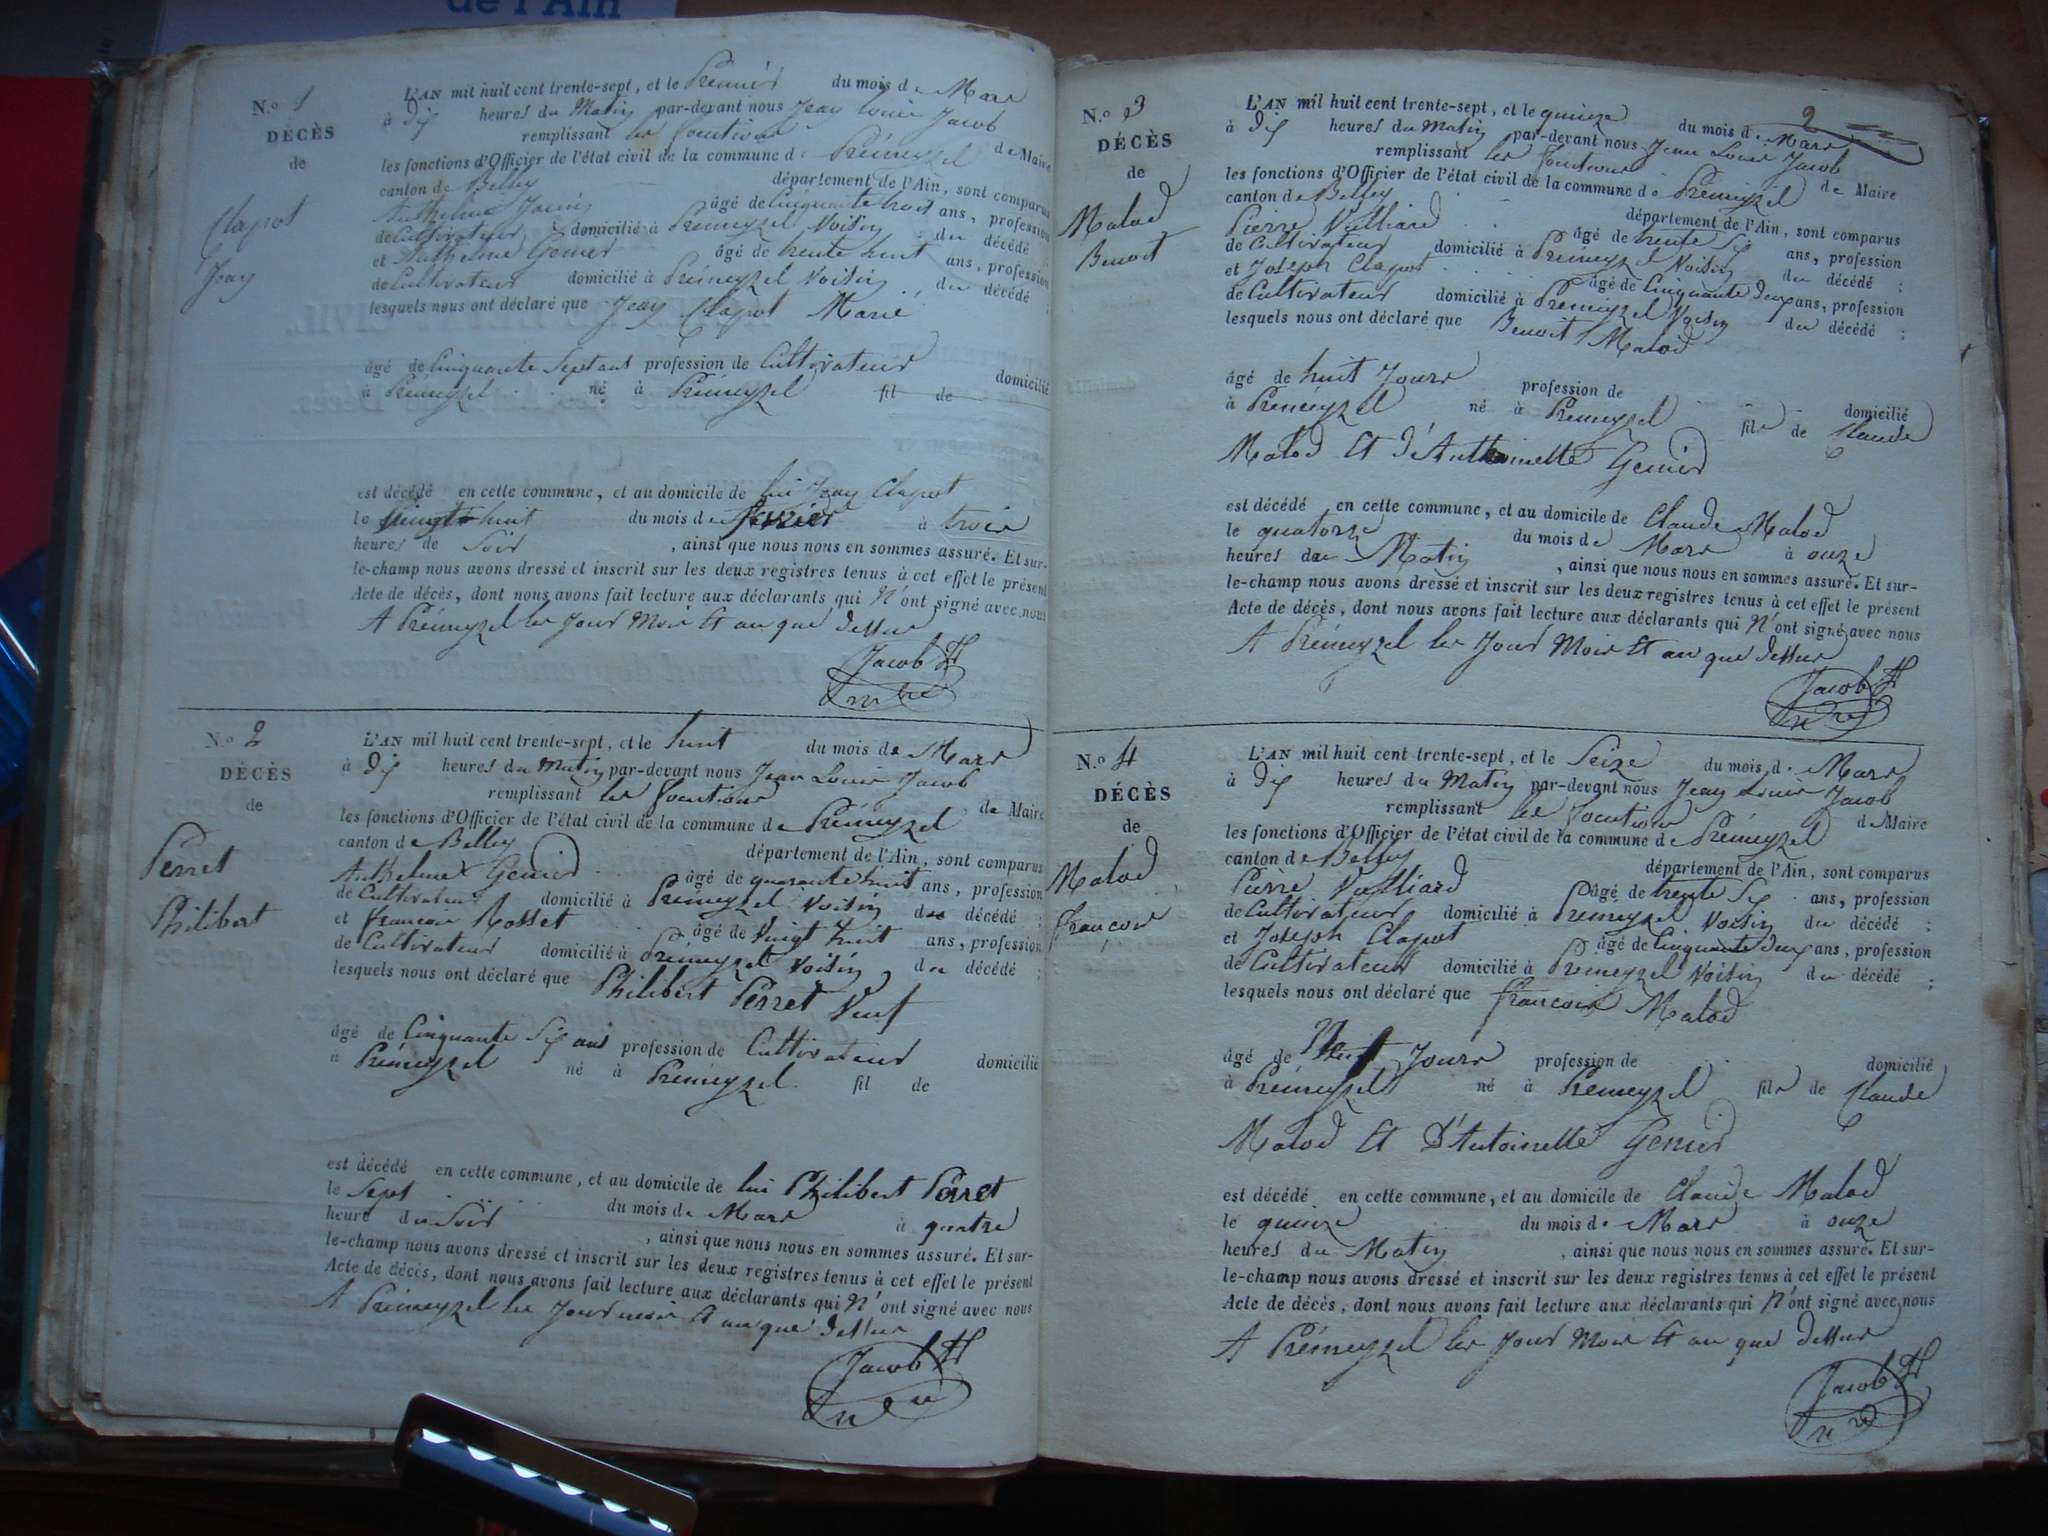 de l'Ain
N.o 1
DÉCÈS
de
Clapot
Jean
L'AN mil huit cent trente-sept, et le Premier du mois de Mars
à Dix heures du Matin par-devant nous Jean Louis Jacob
remplissant les fonctions de Maire
les fonctions d'Officier de l'état civil de la commune de Prémeyzel
canton de Belley département de l'Ain, sont comparus
Anthelme âgé de Cinquante trois ans, profession
de Cultivateur domicilié à Prémeyzel Voisin du décédé ;
et Anthelme Genier âgé de trente huit ans, profession
de Cultivateur domicilié à Prémeyzel Voisin du décédé ;
lesquels nous ont déclaré que Jean Clapot Marié
âgé de Cinquante Sept ans profession de Cultivateur domicilié
à Prémeyzel né à Prémeyzel fil de
est décédé en cette commune, et au domicile de lui Jean Clapot
le vingt huit du mois de février à trois
heures de Soir , ainsi que nous nous en sommes assuré. Et sur-
le-champ nous avons dressé et inscrit sur les deux registres tenus à cet effet le présent
Acte de décès, dont nous avons fait lecture aux déclarants qui N'ont signé avec nous
A Prémeyzel les Jour Mois Et an que dessus
Jacob
N.o 2
DÉCÈS
de
Perret
Philibert
L'AN mil huit cent trente-sept, et le huit du mois de Mars
à Dix heures du Matin par-devant nous Jean Louis Jacob
remplissant les fonctions de Maire
les fonctions d'Officier de l'état civil de la commune de Prémeyzel
canton de Belley département de l'Ain, sont comparus
Anthelme Genier âgé de quarante huit ans, profession
de Cultivateur domicilié à Prémeyzel Voisin du décédé ;
et françois Rosset âgé de Vingt huit ans, profession
de Cultivateur domicilié à Prémeyzel Voisin du décédé ;
lesquels nous ont déclaré que Philibert Perret Veuf
âgé de Cinquante Six ans profession de Cultivateur domicilié
à Prémeyzel né à Prémeyzel fil de
est décédé en cette commune, et au domicile de lui Philibert Perret
le Sept du mois de Mars à quatre
heure du Soir , ainsi que nous nous en sommes assuré. Et sur-
le-champ nous avons dressé et inscrit sur les deux registres tenus à cet effet le présent
Acte de décès, dont nous avons fait lecture aux déclarants qui N'ont signé avec nous
A Prémeyzel les Jour mois Et an que dessus
Jacob
2
N.o 3
DÉCÈS
de
Malod
Benoit
L'AN mil huit cent trente-sept, et le quinze du mois de Mars
à Dix heures du Matin par-devant nous Jean Louis Jacob
remplissant les fonctions de Maire
les fonctions d'Officier de l'état civil de la commune de Prémeyzel
canton de Belley département de l'Ain, sont comparus
Pierre Vulliard âgé de trente Six ans, profession
de Cultivateur domicilié à Prémeyzel Voisin du décédé ;
et Joseph Clapot âgé de Cinquante deux ans, profession
de Cultivateur domicilié à Prémeyzel Voisin du décédé ;
lesquels nous ont déclaré que Benoit Malod
âgé de huit Jours profession de domicilié
à Prémeyzel né à Prémeyzel fils de Claude
Malod Et d'Anthoinette Genier
est décédé en cette commune, et au domicile de Claude Malod
le quatorze du mois de Mars à onze
heures du Matin , ainsi que nous nous en sommes assuré. Et sur-
le-champ nous avons dressé et inscrit sur les deux registres tenus à cet effet le présent
Acte de décès, dont nous avons fait lecture aux déclarants qui N'ont signé avec nous
A Prémeyzel les Jour Mois Et an que dessus
Jacob
N.o 4
DÉCÈS
de
Malod
françois
L'AN mil huit cent trente-sept, et le Seize du mois de Mars
à Dix heures du Matin par-devant nous Jean Louis Jacob
remplissant les fonctions de Maire
les fonctions d'Officier de l'état civil de la commune de Prémeyzel
canton de Belley département de l'Ain, sont comparus
Pierre Vulliard âgé de trente Six ans, profession
de Cultivateur domicilié à Prémeyzel Voisin du décédé ;
et Joseph Clapot âgé de Cinquante deux ans, profession
de Cultivateur domicilié à Prémeyzel Voisin du décédé ;
lesquels nous ont déclaré que françois Malod
âgé de Jours profession de domicilié
à Prémeyzel né à Prémeyzel fils de Claude
Malod Et D'Antoinette Genier
est décédé en cette commune, et au domicile de Claude Malod
le quinze du mois de Mars à onze
heures du Matin , ainsi que nous nous en sommes assuré. Et sur-
le-champ nous avons dressé et inscrit sur les deux registres tenus à cet effet le présent
Acte de décès, dont nous avons fait lecture aux déclarants qui N'ont signé avec nous
A Prémeyzel les Jour Mois Et an que dessus
Jacob